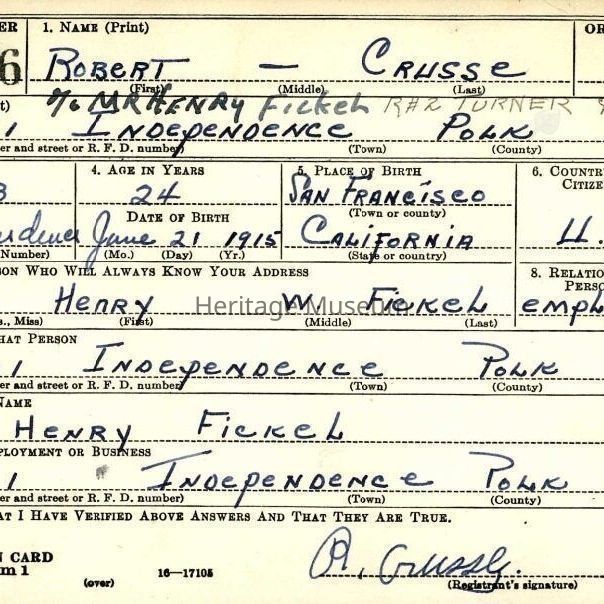 ER 1. NAME (Print) OR
6 ROBERT — CRUSSE
(First) (Middle) (Last)
% MR HENRY Fickel R#2 TURNER
1 Independence Polk
er and street or R. F. D. number) (Town) (County)
4. AGE IN YEARS 5. PLACE OF BIRTH 6. COUNTR
CITIZE
24 San Francisco
(Town or county)
DATE OF BIRTH
June 21 1915 California U.
Number) (Mo.) (Day) (Yr.) (State or country)
SON WHO WILL ALWAYS KNOW YOUR ADDRESS 8. RELATIO
PERSO
Henry W Fickel empl
s., Miss) (First) (Middle) (Last)
Heritage Museum
HAT PERSON
1 Independence Polk
er and street or R. F. D. number) (Town) (County)
NAME
Henry Fickel
PLOYMENT OR BUSINESS
1 Independence Polk
er and street or R. F. D. number) (Town) (County)
AT I HAVE VERIFIED ABOVE ANSWERS AND THAT THEY ARE TRUE.
N CARD
m 1 (over) 16—17105
(Registrant's signature)